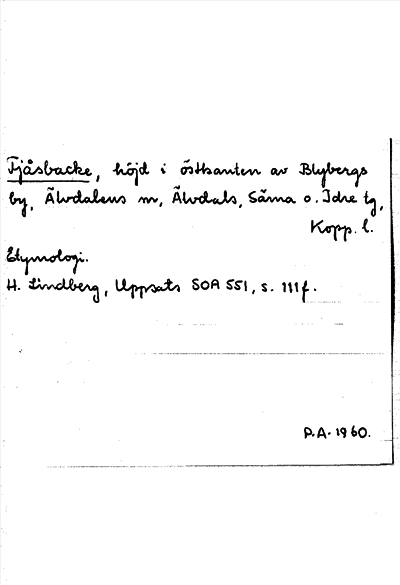 Tjåsbacke, höjd i östkanten av Blybergs
by, Älvdalens m, Älvdals, Särna o. Idre tg,
Kopp. l.
Etymologi.
H. Lindberg, Uppsats SOA 551, s. 111f.
P.A. 1960.